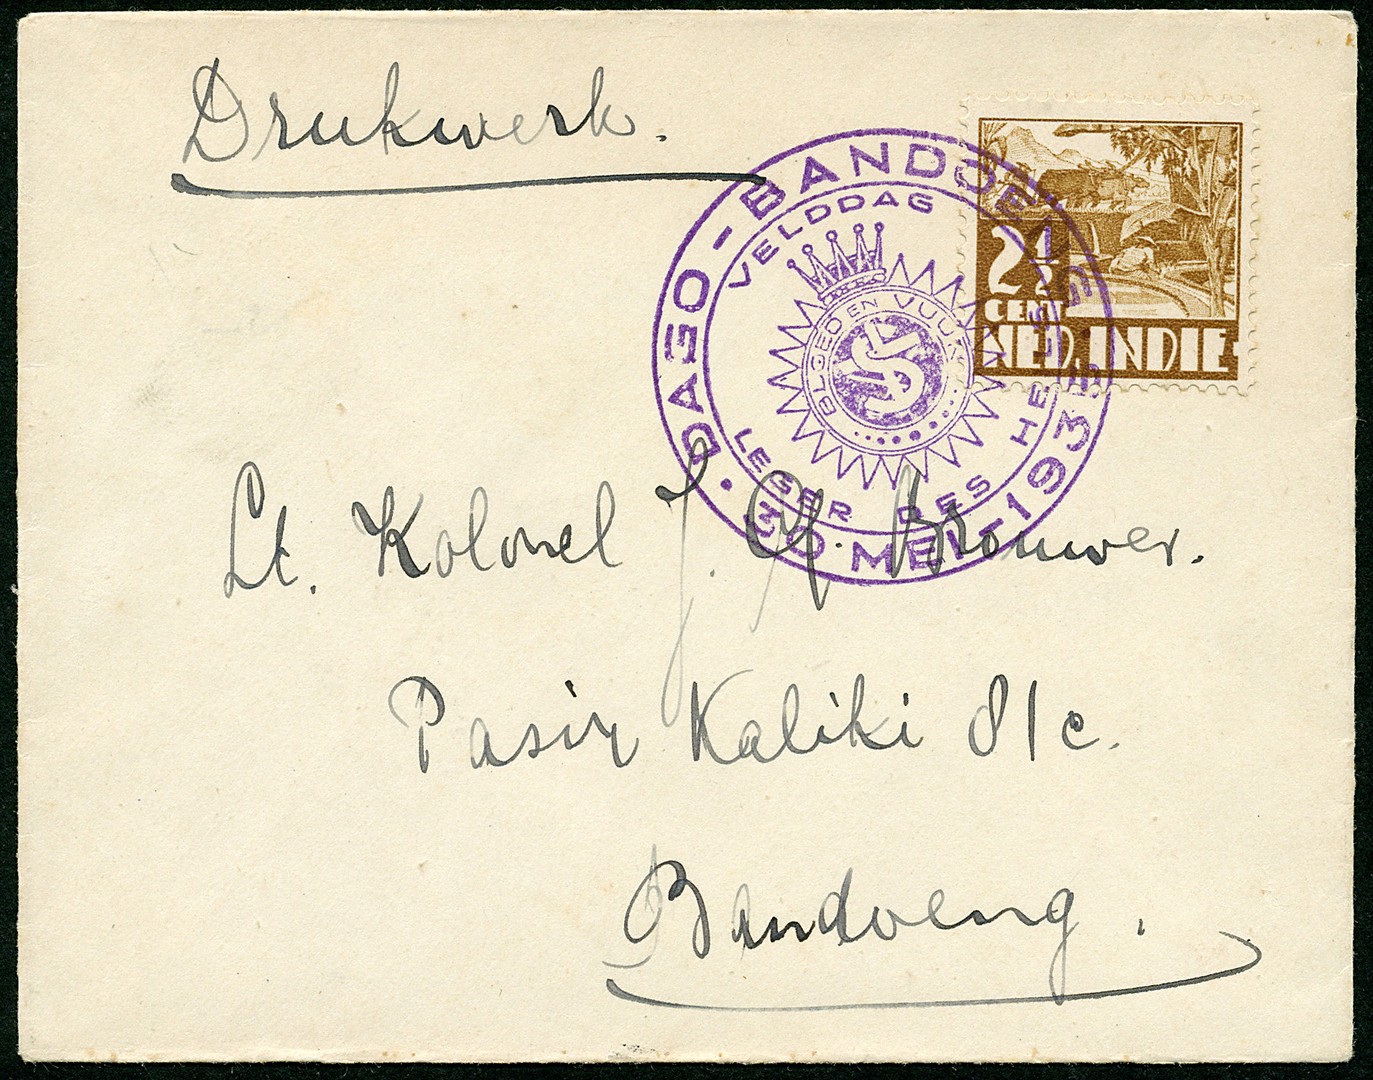 Drukwerk.
DAGO - BANDOENG
VELDDAG
BLOED EN VUUR
S
LEGER DES HEILS
30 MEI 1935
2½
CENT
NED. INDIE
Lt. Kolonel J. Brouwer.
Pasir Kaliki 81c.
Bandoeng.